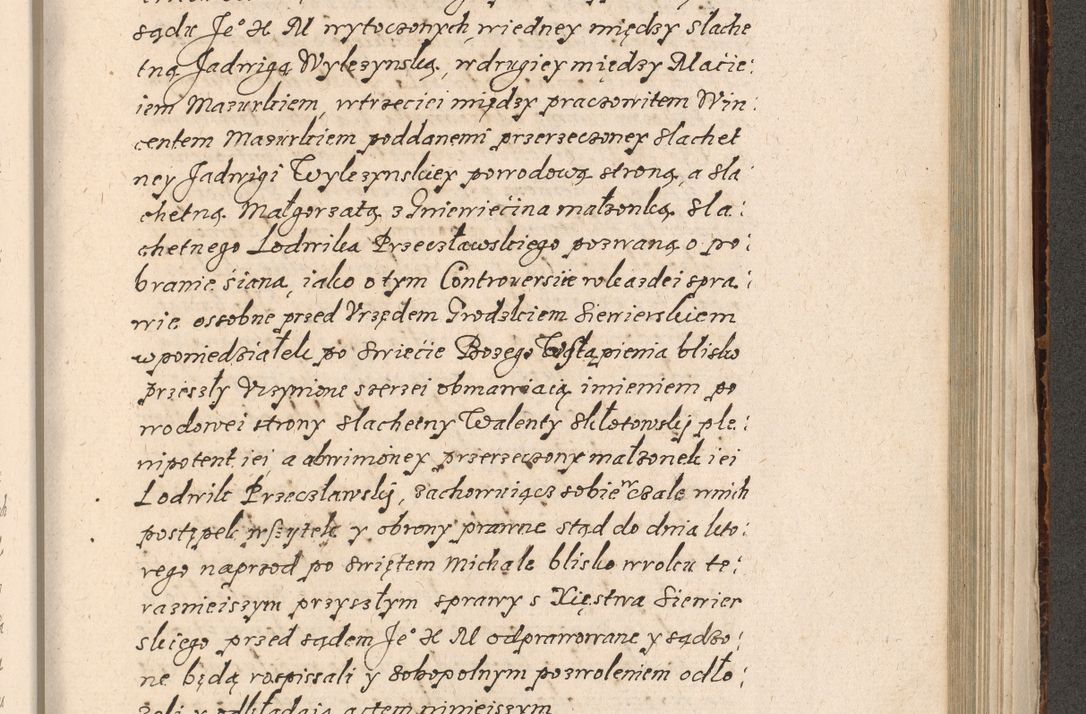 sądu Jeº X M wytoczonych, wiedney między slache
tną Jadwigą Wylezynską, wdrugiey między Macie:
iem Mazurkiem, wtrzeciei między praczowitem Win:
centem Mazurkiem poddanemi przerzeczoney slachet
ney Jadwigi Wylezynskiey powodową stroną, a sla
chetną Małgorzatą z Gniewięcina małzonką sla:
chetnego Lodwika Przeczławskiego pozwaną o po:
branie śiana, iako o tym Controuersiie wkazdei spra:
wie ossobne przed Vrzędem Grodzkiem Siewierskiem
w poniedziałek po Swiećie Bozego Wstąpienia blisko
przeszły Vczynione szerzei obmawiaią imieniem po
wodowei strony slachetny Walenty Skłotowskÿ ple:
nipotent iei a abwinioney przerzeczony małzonek iei
Lodwik Przeczlawskÿ, zachowuiącz sobie w czale wnich
postępek wszytek y obrony prawne stąd do dnia kto:
rego naprzod po swiętem Michale blisko wroku te:
raznieiszym przyszłym sprawy s Xięstwa Siewier
skiego przed sądem Jeº X M odprawowane y sądzo:
ne będą rospissali y zobopolnym pozwoleniem odło:
zeli y odkładaią actem ninieiszym